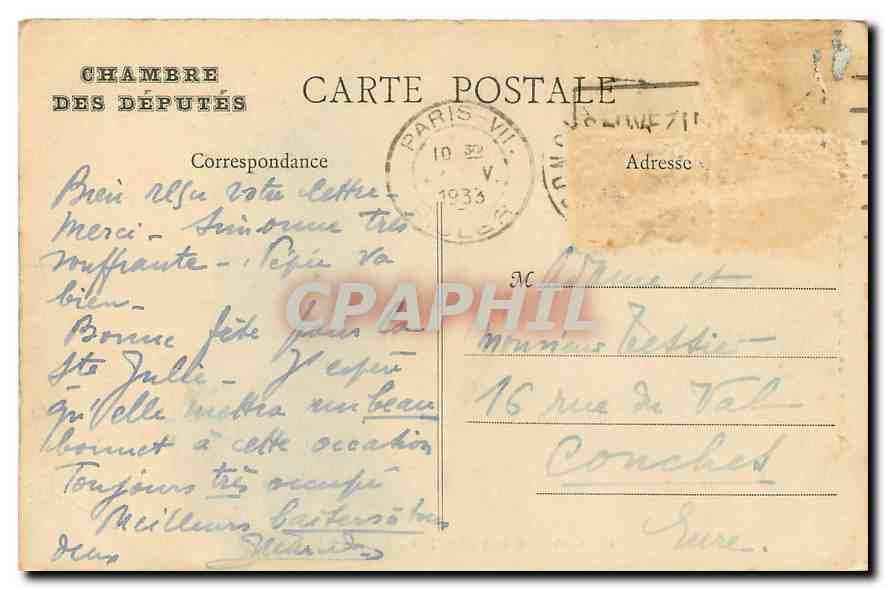 CHAMBRE
DES DÉPUTÉS
CARTE POSTALE
PARIS-VII
10 30
V
1933
Correspondance
Adresse
Bien reçu votre lettre -
Merci - Simonne très
souffrante - Pépée va
bien -
Bonne fête pour la
Ste Julie - J'espère
qu'elle mettra un beau
bonnet à cette occasion
Toujours très occupé
Meilleurs baisers à tous
deux
M adame et
monsieur Tessier
16 rue du Val
Conches
Eure.
CPAPHIL